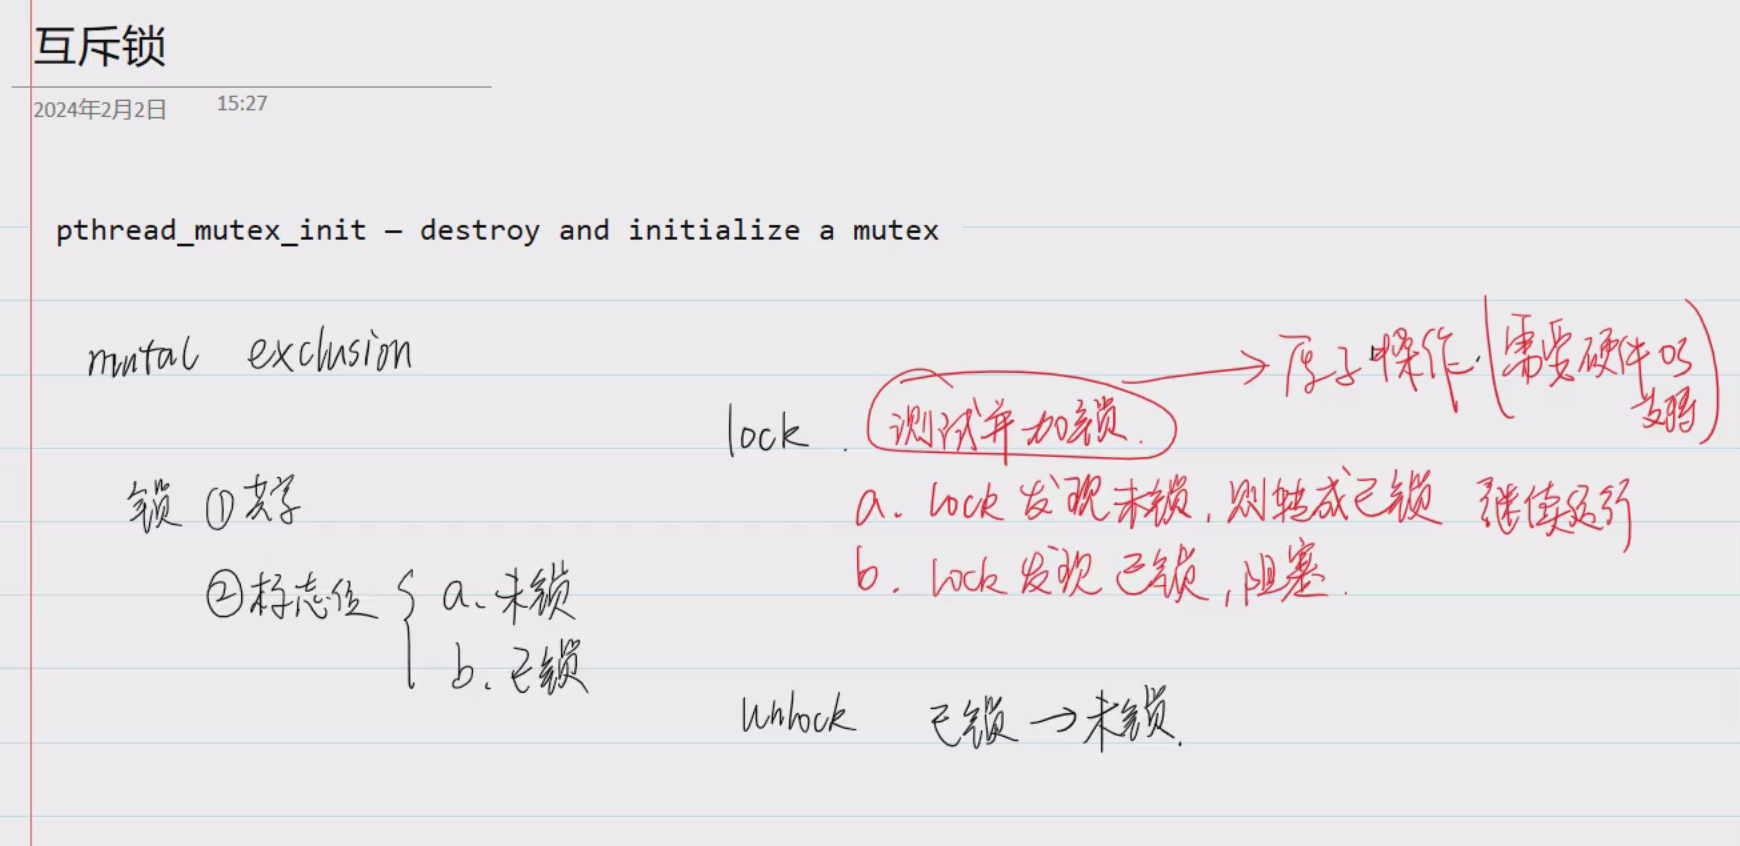 互斥锁
2024年2月2日 15:27
pthread_mutex_init — destroy and initialize a mutex
mutal exclusion
lock. 测试并加锁. → 原子操作.(需要硬件的支持)
锁 ①共享
②标志位 { a. 未锁
b. 已锁
a. lock 发现未锁, 则转成已锁 继续运行
b. lock 发现 已锁, 阻塞.
unlock 已锁 → 未锁.